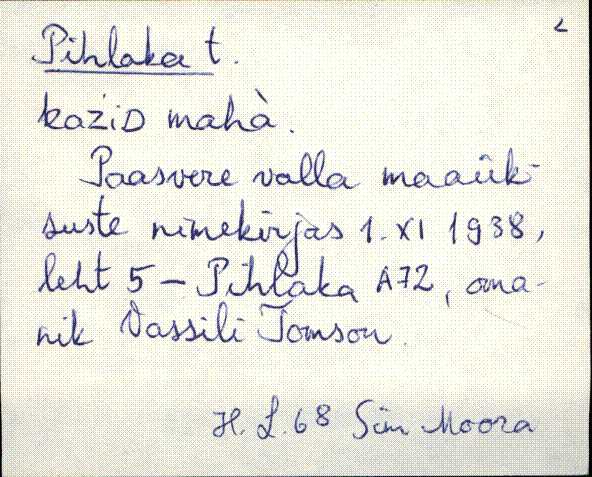 Pihlaka t.
kaziD mahà.
Paasvere valla maaük-
suste nimekirjas 1. XI 1938,
leht 5 – Pihlaka A72, oma-
nik Vassili Tomson.
H. L. 68 Sim Moora